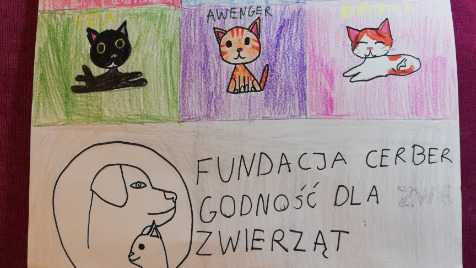 FELA
AWENGER
FUNDACJA CERBER
GODNOŚĆ DLA
ZWIERZĄT